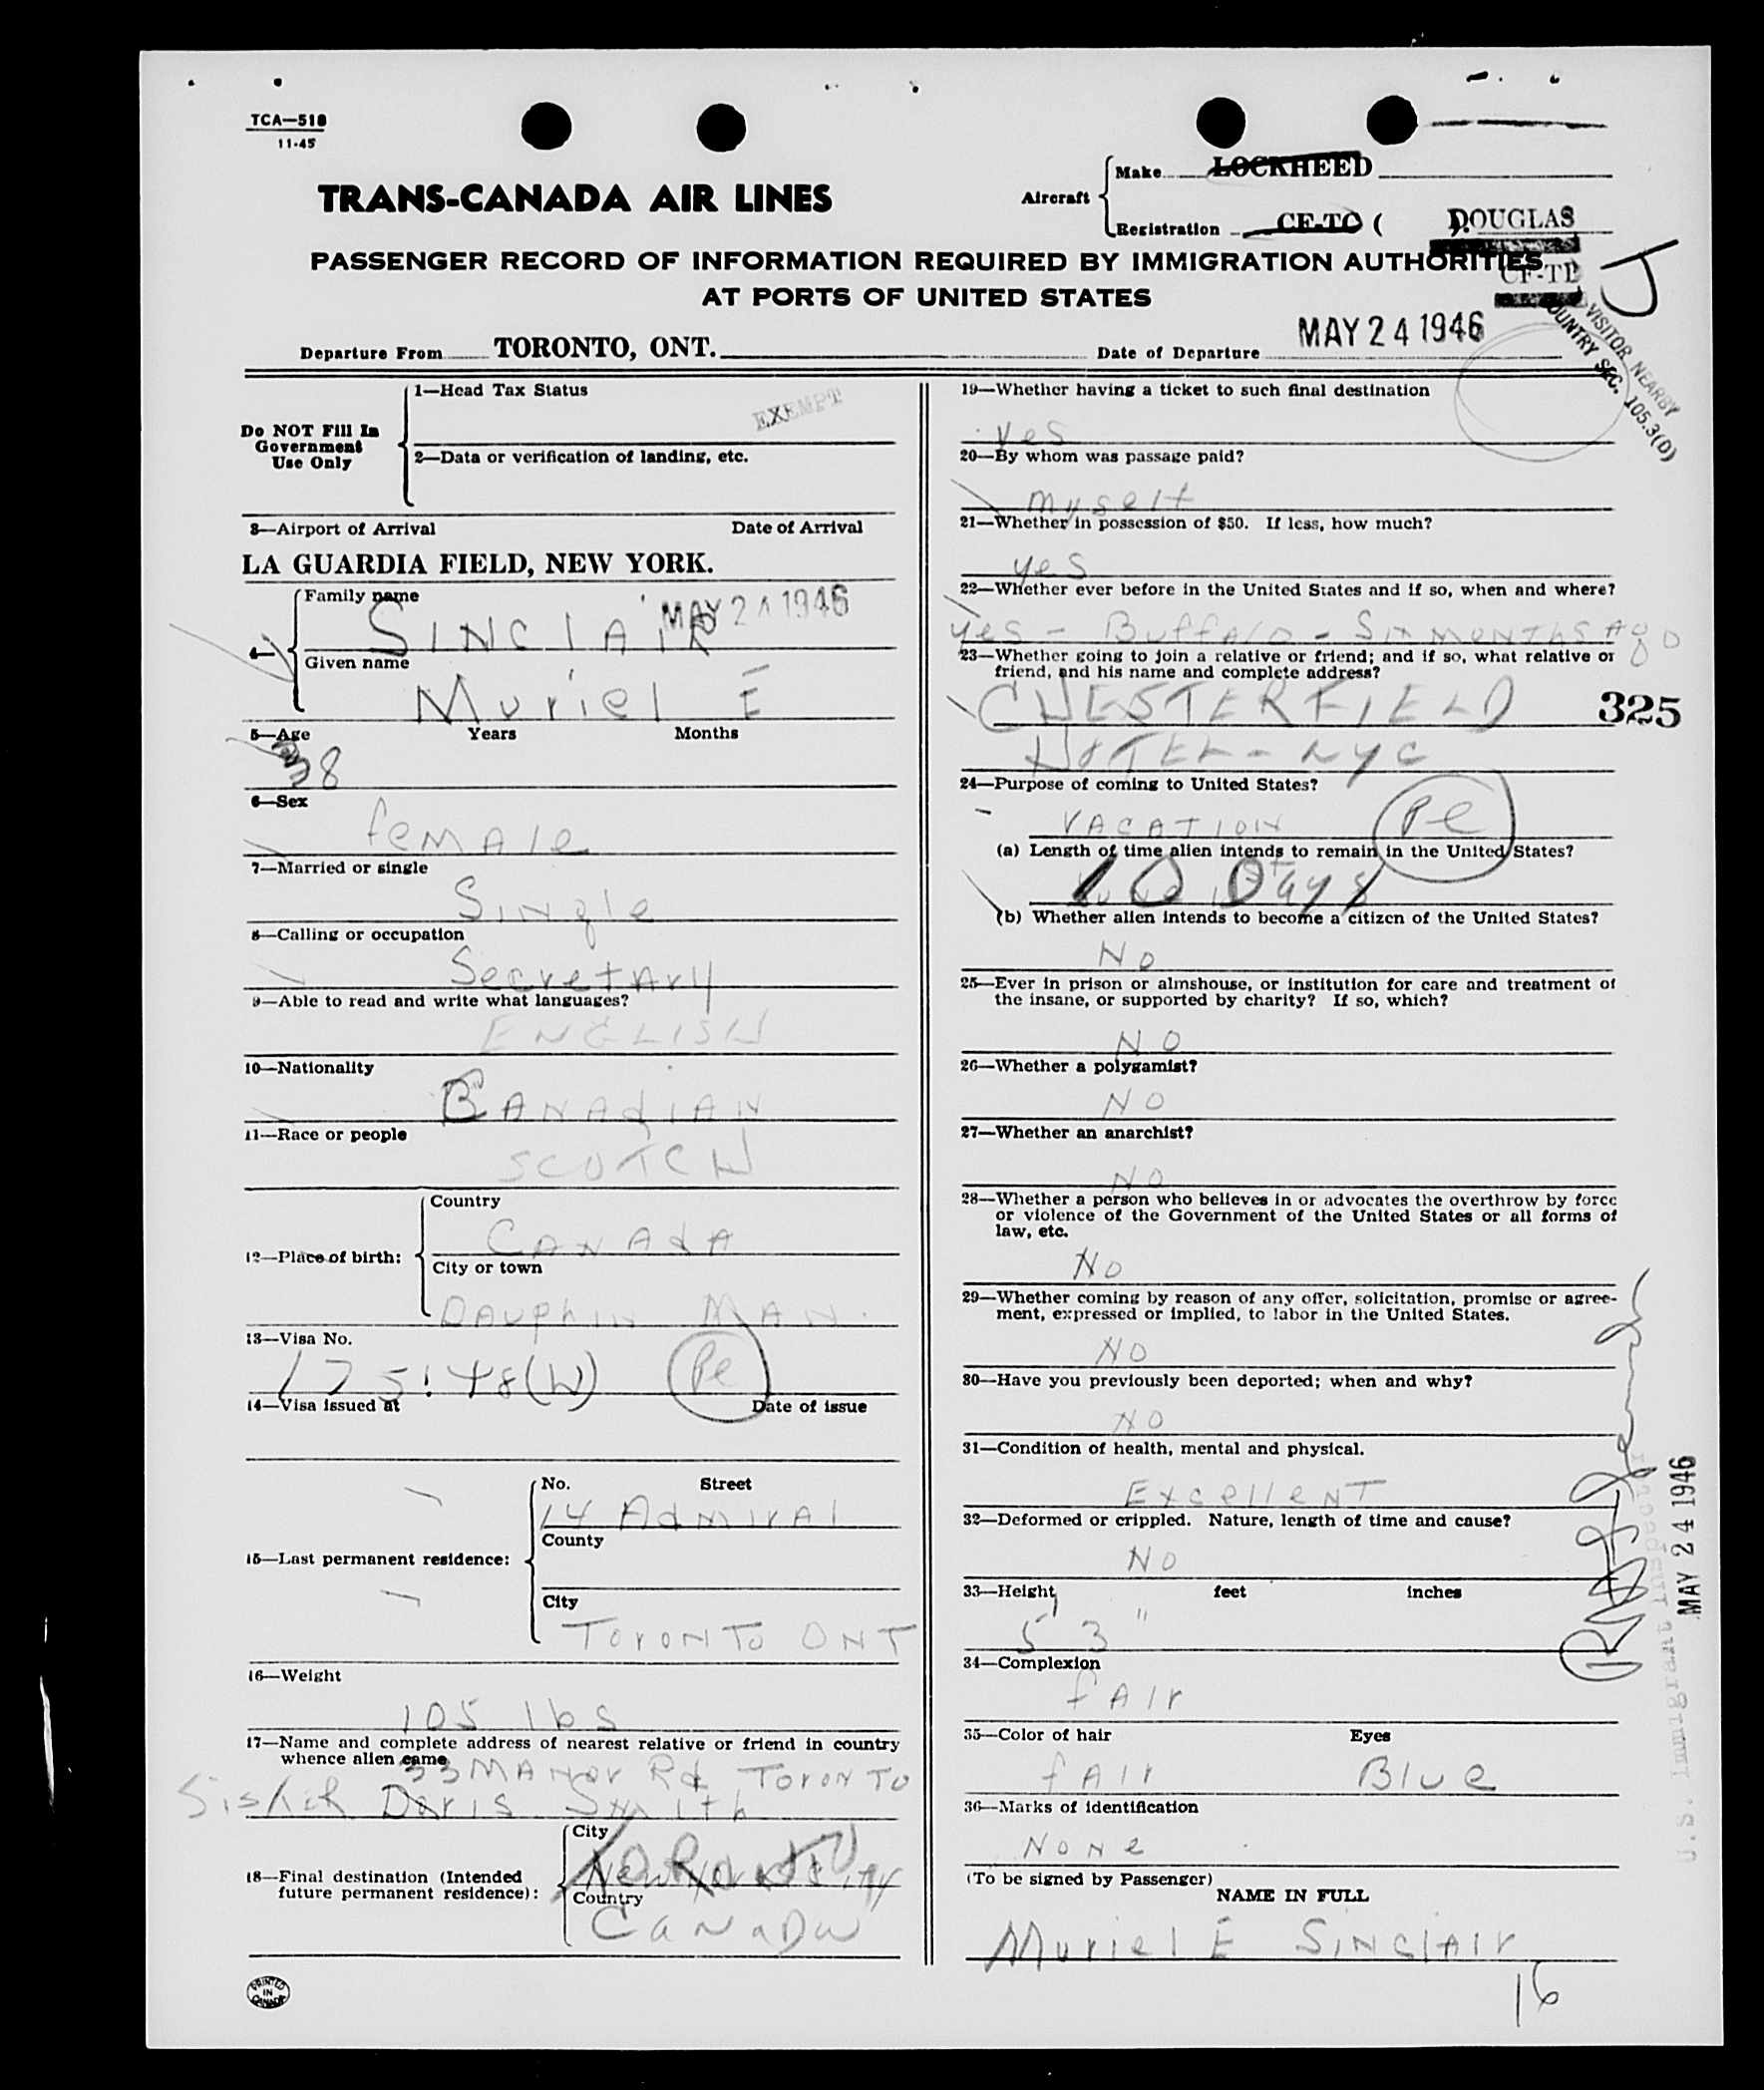 TCA—518
11-45
TRANS-CANADA AIR LINES
Aircraft
Make LOCKHEED
Registration CF-TC ( ) DOUGLAS
PASSENGER RECORD OF INFORMATION REQUIRED BY IMMIGRATION AUTHORITIES
CF-TD
AT PORTS OF UNITED STATES
J
VISITOR NEARBY
COUNTRY SEC. 105.3(D)
Departure From TORONTO, ONT.
Date of Departure MAY 24 1946
Do NOT Fill In
Government
Use Only
1—Head Tax Status
EXEMPT
2—Data or verification of landing, etc.
3—Airport of Arrival Date of Arrival
LA GUARDIA FIELD, NEW YORK.
MAY 24 1946
4—
Family name
SINCLAIR
Given name
Muriel E
5—Age Years Months
38
6—Sex
female
7—Married or single
Single
8—Calling or occupation
Secretary
9—Able to read and write what languages?
ENGLISH
10—Nationality
CANAdiAN
11—Race or people
SCOTCH
12—Place of birth:
Country
CANAdA
City or town
DAuphin MAN.
13—Visa No.
175148(W) Pe
14—Visa issued at Date of issue
15—Last permanent residence:
No. Street
14 Admiral
County
City
Toronto ONT
16—Weight
105 lbs
17—Name and complete address of nearest relative or friend in country
whence alien came
33 MANor Rd Toronto
Sister Doris Smith
18—Final destination (Intended
future permanent residence):
City
New York City
TORONTO
Country
CANADA
PRINTED
IN
CANADA
19—Whether having a ticket to such final destination
yes
20—By whom was passage paid?
myself
21—Whether in possession of $50. If less, how much?
yes
22—Whether ever before in the United States and if so, when and where?
yes - Buffalo - Six months Ago
23—Whether going to join a relative or friend; and if so, what relative or
friend, and his name and complete address?
CHESTERFIELD
325
HOTEL - NYC
24—Purpose of coming to United States?
VACATION Pe
(a) Length of time alien intends to remain in the United States?
10 Days
(b) Whether alien intends to become a citizen of the United States?
No
25—Ever in prison or almshouse, or institution for care and treatment of
the insane, or supported by charity? If so, which?
NO
26—Whether a polygamist?
NO
27—Whether an anarchist?
NO
28—Whether a person who believes in or advocates the overthrow by force
or violence of the Government of the United States or all forms of
law, etc.
No
29—Whether coming by reason of any offer, solicitation, promise or agree-
ment, expressed or implied, to labor in the United States.
NO
30—Have you previously been deported; when and why?
NO
31—Condition of health, mental and physical.
Excellent
32—Deformed or crippled. Nature, length of time and cause?
No
33—Height feet inches
5' 3"
34—Complexion
fAir
35—Color of hair Eyes
fAir Blue
36—Marks of identification
None
(To be signed by Passenger)
NAME IN FULL
Muriel E Sinclair
16
U.S. Immigrant Inspector
MAY 24 1946